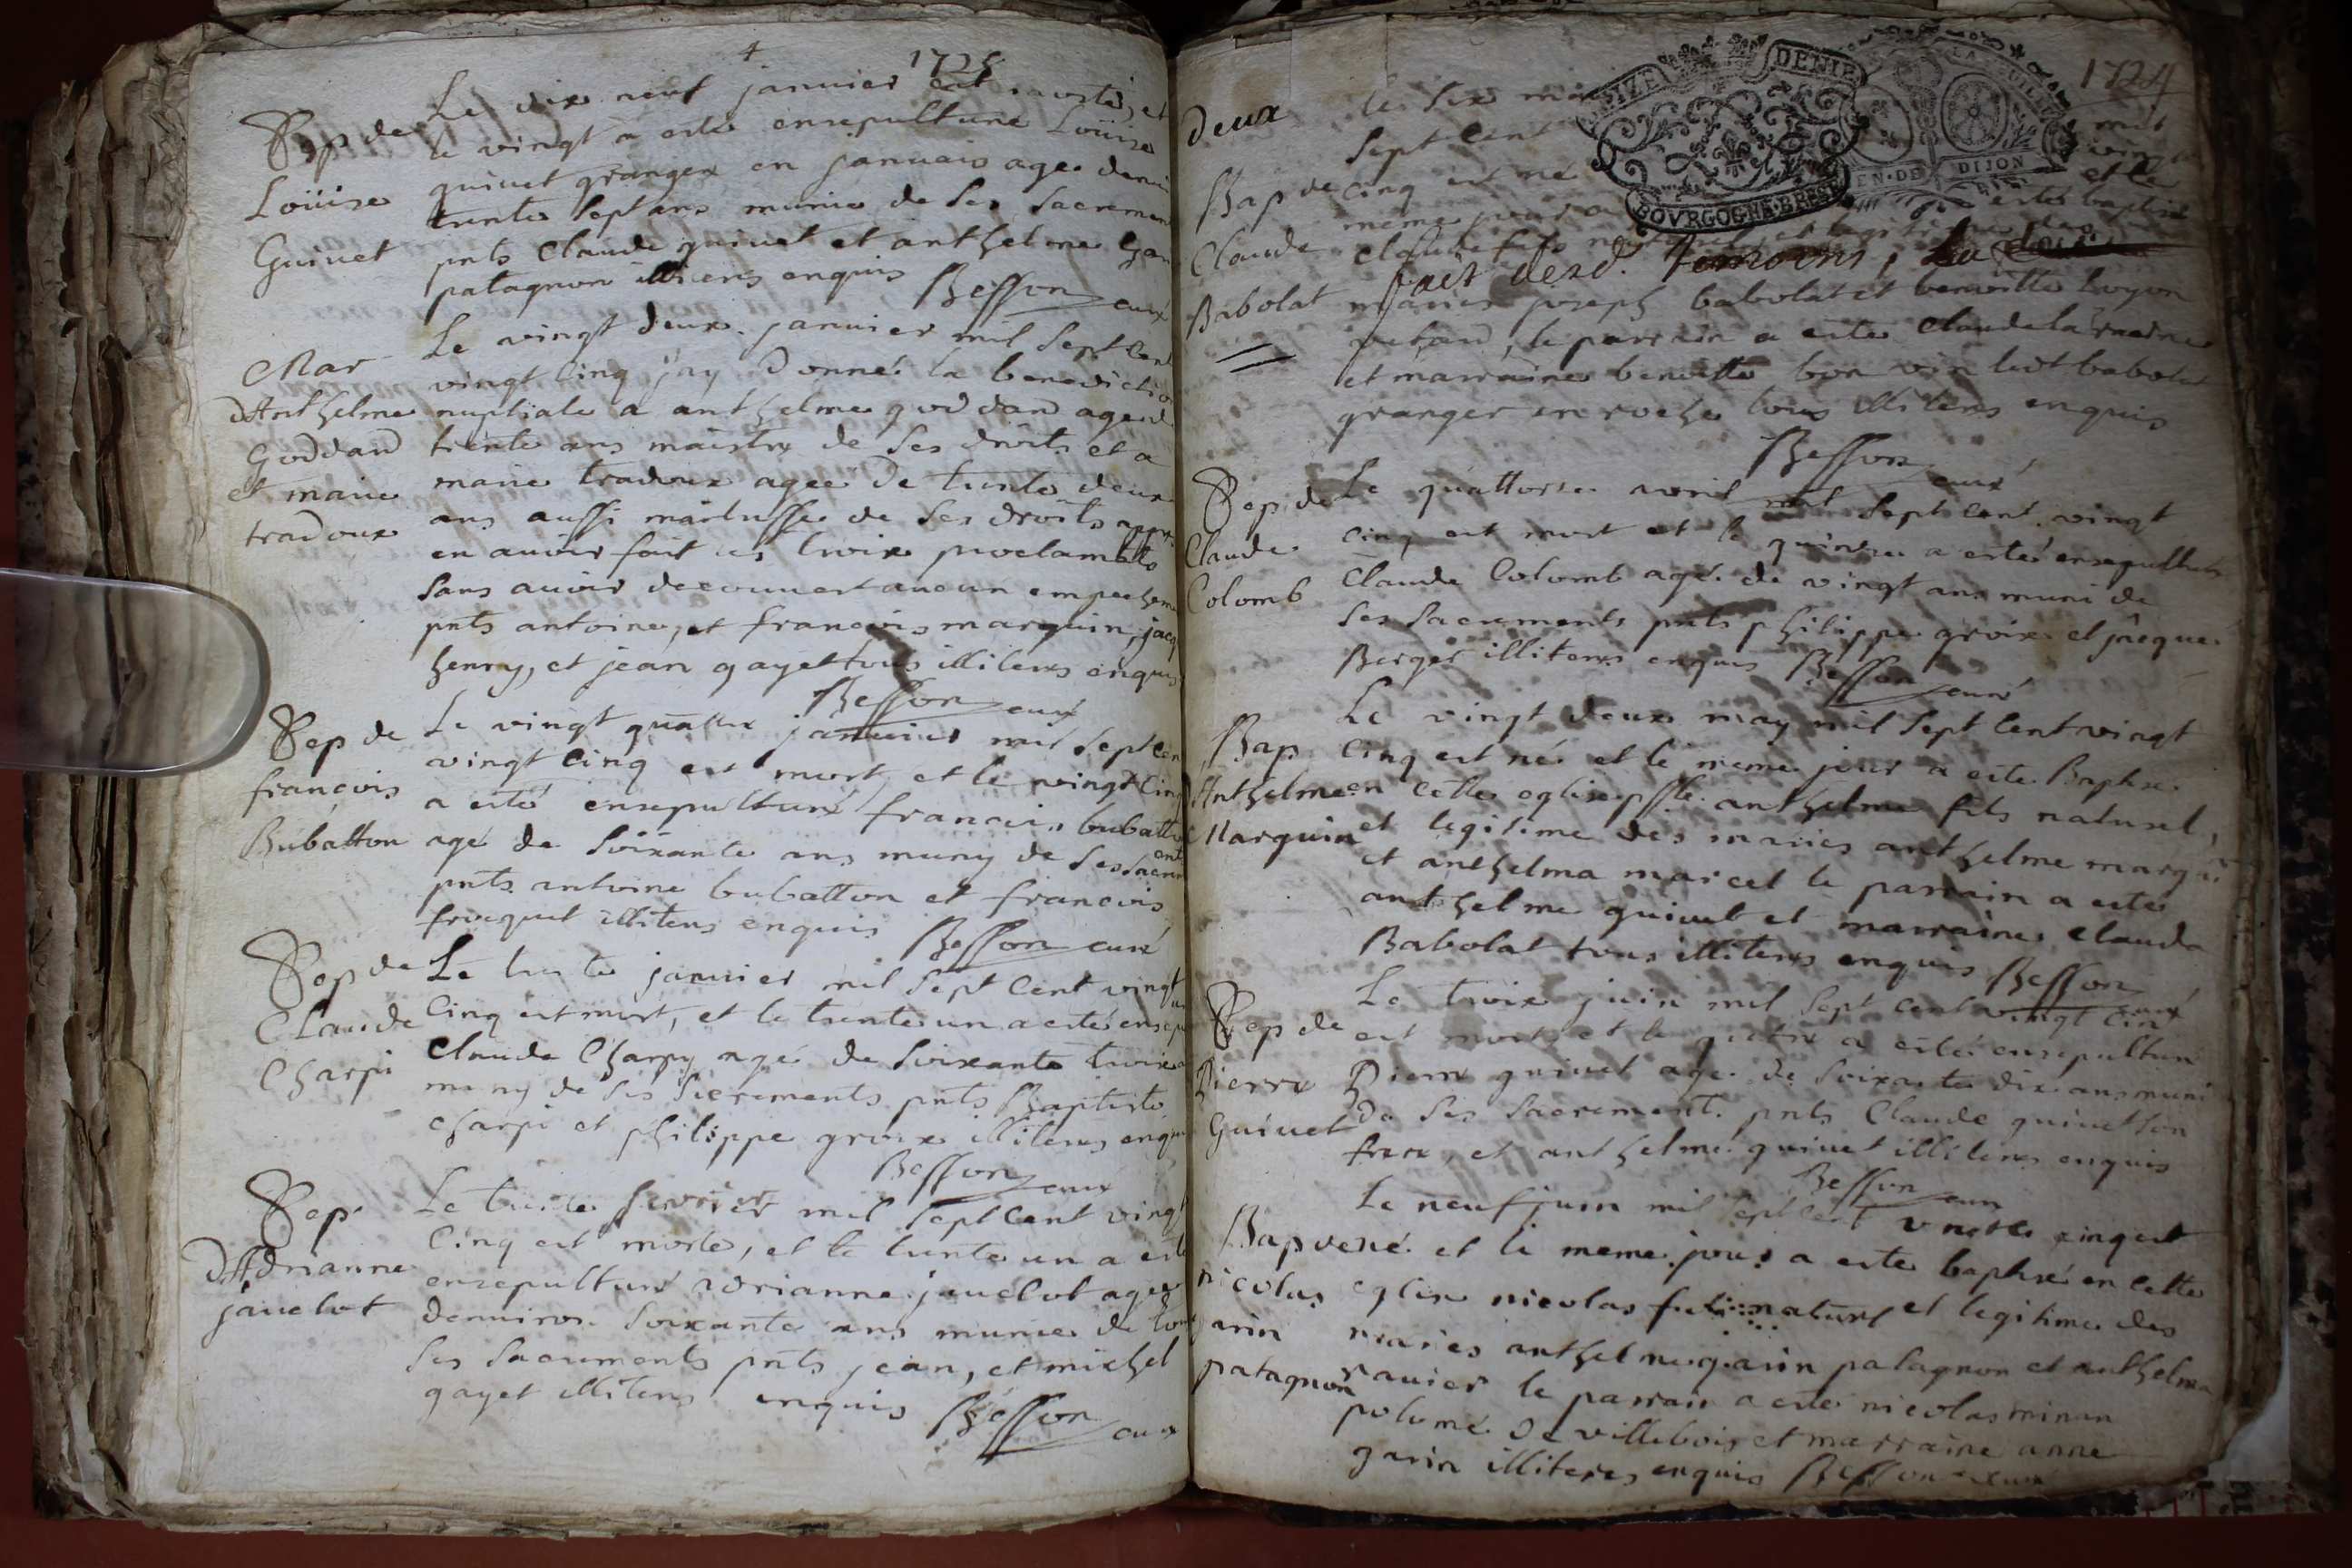 4
1725
Sep de
Loüise
Guinet
Le dix neuf janvier est morte, et
le vingt a esté ensepulturé Loüise
guinet grangere en januais agee denvi
trente sept ans munie de ses sacremen
pnts Claude guinet et anthelme Ga
patagnon illiteres enquis Besson curé
Mar
d'Anthelme
Goddard
et marie
tradoux
Le vingt deux janvier mil sept cent
vingt cinq j'ay donné la benedictio
nuptiale a anthelme goddard agé d
trente ans maistre de ses droits et a
marie tradoux agee de trente deux
ans aussi maitresse de ses droits appres
en avoir fait les troix proclamats
sans avoir decouvert aucun empechem
pnts antoine, et francois marquin, jacq
henry, et jean gayet tous illiteres enquis
Besson curé
Sep de
francois
Bubatton
Le vingt quattre janvier mil sept cen
vingt cinq est mort, et le vingt cinq
a esté ensepulturé francois bubatto
agé de soixante ans muny de ses sacrem
ent
pnts antoine bubatton et francois
froquet illiteres enquis Besson curé
Sep de
Claude
Charpi
Le trente janvier mil sept cent vingt
cinq est mort, et le trente un a esté ensepu
Claude Charpy agé de soixante troix a
muny de ses sacrements pnts Baptiste
charpi et philippe groix illiteres enqui
Besson curé
Sep
d'Adrianne
jauclot
Le fevrier mil sept cent vingt
cinq est morte, et le trente un a esté
ensepulturé adrianne jauclot agee
denviron soixante ans munie de tous
ses sacrements pnts jean, et michel
gayet illiteres enquis Besson curé
1724
SEIZE DENIE
BOVRGOGNE·BRESSE
LA FUILLE
EN·DE DIJON
deux
Bap de
Claude
Babolat
le six
sept cent mil
cinq est né vingt
meme jour a et le
esté baptisé
claude fils naturel et legitime des
fait desd. temoins,
mariés joseph babolat et benoitte
le parrain a esté Claude
et marraine benoitte bon vin babolat
granger en roche tous illiteres enquis
Besson curé
Sep de
Claude
Colomb
Le quattorze avril mil sept cent vingt
cinq est mort et le quinze a esté ensepulturé
Claude Colomb agé de vingt ans muni de
ses sacrements pnts philippe groix et jacque
Berger illiteres enquis Besson curé
Bap
Anthelme
Marquin
Le vingt deux may mil sept cent vingt
cinq est né et le meme jour a esté Baptisé
en cette eglise pnte anthelme fils naturel
et legitime des mariés anthelme marquin
et anthelma marcel le parrain a esté
anthelme guinet et marraine clauda
Babolat tous illiteres enquis Besson curé
Sep de
Pierre
Guinet
Le troix juin mil sept cent vingt cin
est mort et le quatre a esté ensepulturé
Pierre guinet agé de soixante dix ans muni
de ses sacrement pnts Claude guinet son
frere, et anthelme guinet illiteres enquis
Besson curé
Bap de
nicolas
garin
patagnon
Le neuf juin mil sept cent vingt cinq est
né et le meme jour a esté baptisé en cette
eglise nicolas fils naturel et legitime des
mariés anthelme garin patagnon et anthelma
ravier le parrain a esté nicolas minan
polumé de villebois et marraine anne
garin illiteres enquis Besson curé